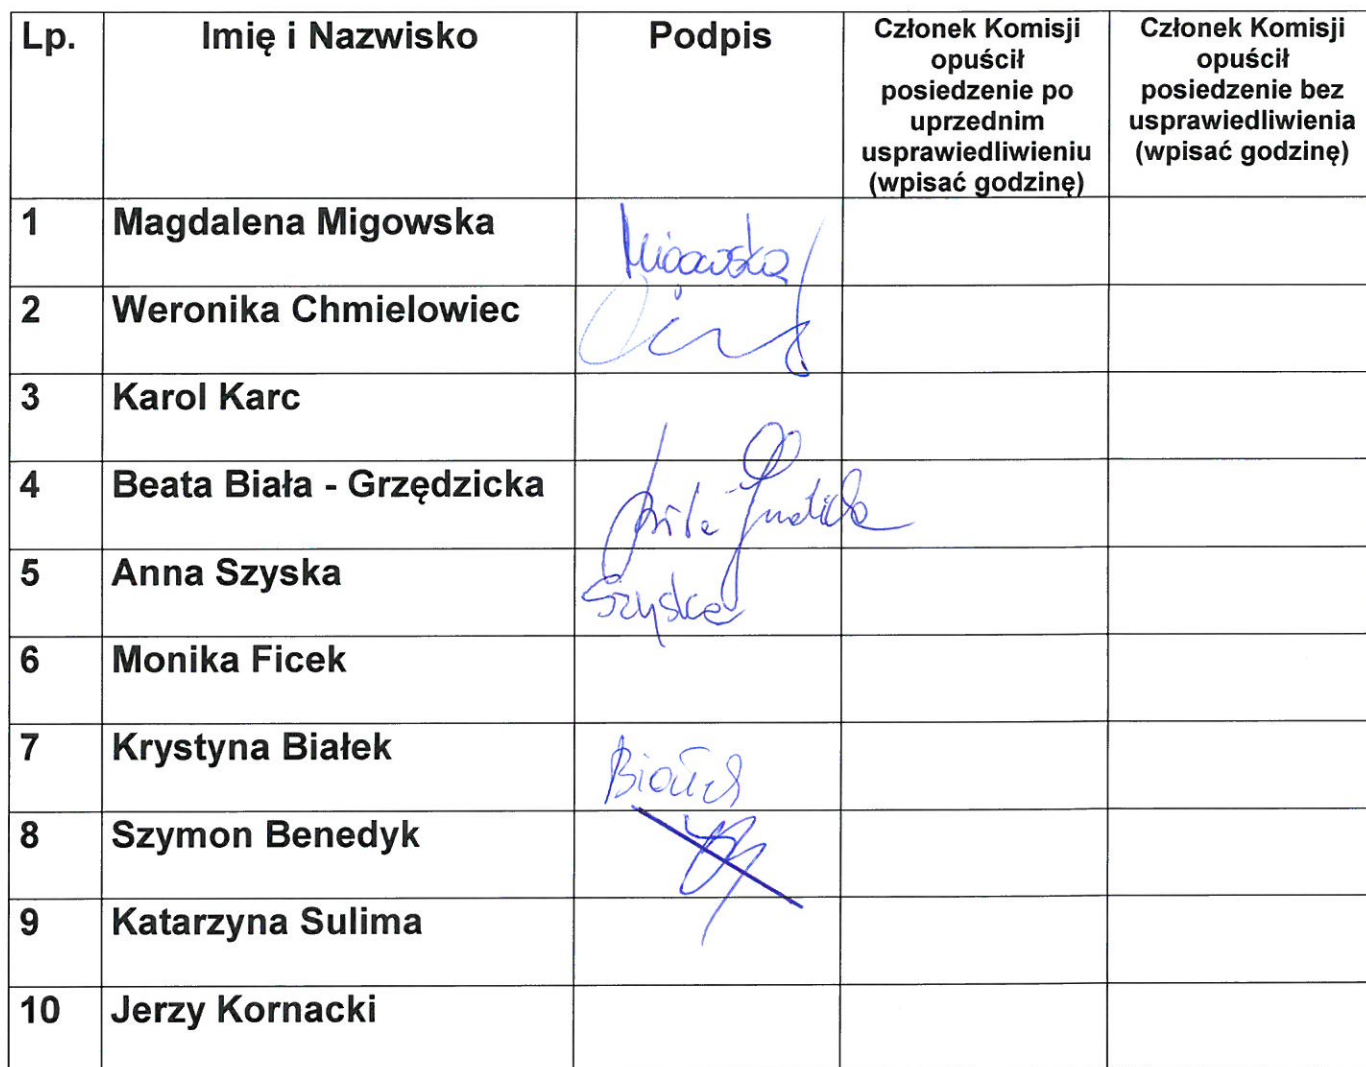 Lp. Imię i Nazwisko Podpis Członek Komisji opuścił posiedzenie po uprzednim usprawiedliwieniu (wpisać godzinę) Członek Komisji opuścił posiedzenie bez usprawiedliwienia (wpisać godzinę)
1 Magdalena Migowska Migowska
2 Weronika Chmielowiec
3 Karol Karc
4 Beata Biała - Grzędzicka
5 Anna Szyska Szyska
6 Monika Ficek
7 Krystyna Białek Białek
8 Szymon Benedyk
9 Katarzyna Sulima
10 Jerzy Kornacki